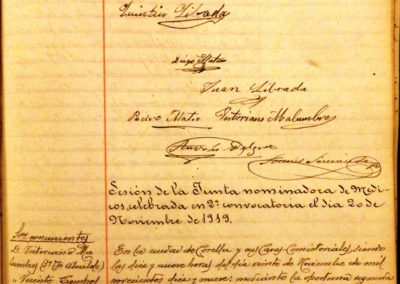 Quintin Librada
Diego Mateo
Juan Librada
Bravo Mateo Victoriano Malumbre
Sesión de la Junta nominadora de Medi-
cos, celebrada en 2ª convocatoria el dia 20 de
Noviembre de 1919.
Sres concurrentes
D. Victoriano Ma
lumbre (3er Tte Alcalde)
" Vicente
En la ciudad de Corella y sus Casas Consistoriales, siendo
las diez y nueve horas del dia veinte de Noviembre de mil
novecientos diez y nueve: mediante la oportuna segunda